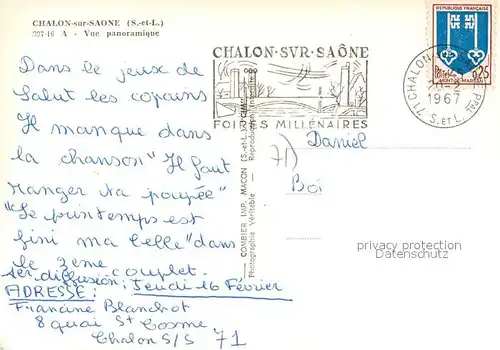 CHALON-sur-SAONE (S.-et-L.)
397-16 A - Vue panoramique
Dans le jeux de
Salut les copains
Il manque dans
la chanson "Il faut
ranger ta poupée"
"Le printemps est
fini ma belle" dans
le 2eme couplet.
1er diffusion: Jeudi 16 Février
ADRESSE:
Francine Blanchot
8 quai St Cosme
Chalon S/S 71
COMBIER IMP. MACON (S.-et-L.)
Photographie Véritable
CHALON·SVR·SAÔNE
FOIRES MILLÉNAIRES
71 CHALON
1967
S. et L.
REPUBLIQUE FRANÇAISE
0,25
MONT-DE-MARSAN
71)
Daniel
Boi
privacy protection
Datenschutz